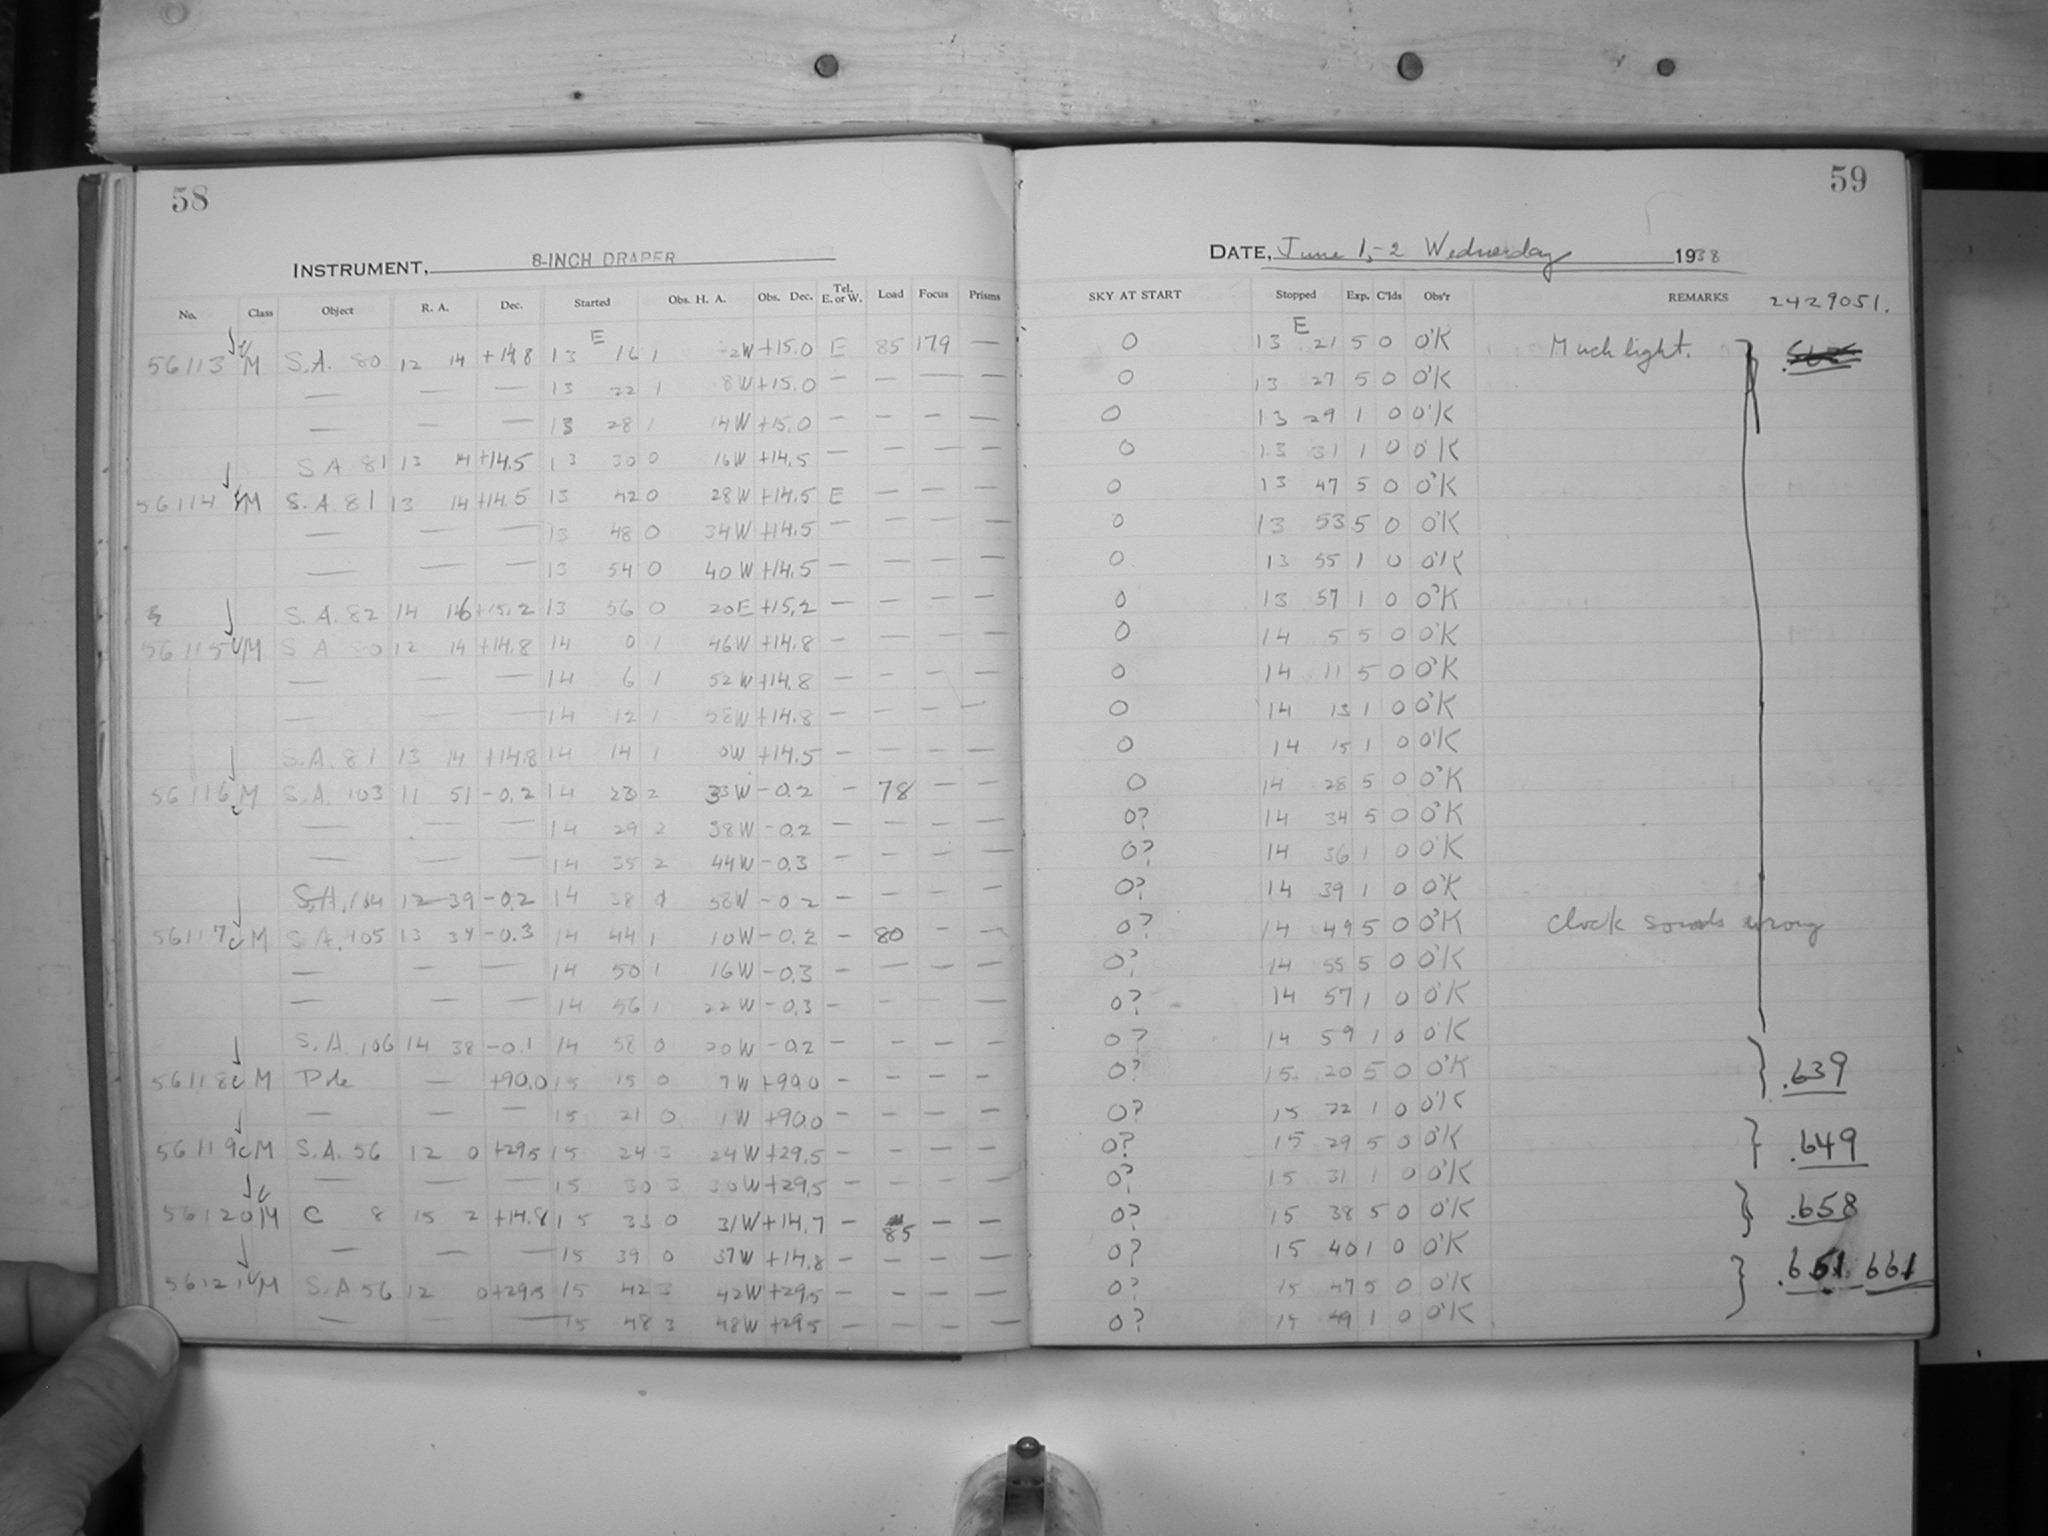 58
INSTRUMENT, 8-INCH DRAPER
No. Class Object R. A. Dec. Started Obs. H. A. Obs. Dec. Tel. E. or W. Load Focus Prisms
E
56113 M S.A. 80 12 14 +14.8 13 16 1 2W +15.0 E 85 179 —
— — 13 22 1 8W +15.0 — — — —
— — — 13 28 1 14W +15.0 — — — —
S.A. 81 13 14 +14.5 13 30 0 16W +14.5 — — — —
56114 M S.A. 81 13 14 +14.5 13 42 0 28W +14.5 E — — —
— — — 13 48 0 34W +14.5 — — — —
— — — 13 54 0 40W +14.5 — — — —
S.A. 82 14 16 +15.2 13 56 0 20E +15.2 — — — —
56115 M S.A. 80 12 14 +14.8 14 0 1 46W +14.8 — — — —
— — — 14 6 1 52W +14.8 — — — —
— — — 14 12 1 58W +14.8 — — — —
S.A. 81 13 14 +14.8 14 14 1 0W +14.5 — — — —
56116 M S.A. 103 11 51 -0.2 14 23 2 33W -0.2 — 78 — —
— — — 14 29 2 38W -0.2 — — — —
— — — 14 35 2 44W -0.3 — — — —
S.A. 104 12 39 -0.2 14 38 58W -0.2 — — — —
56117 M S.A. 105 13 34 -0.3 14 44 1 10W -0.2 — 80 — —
— — — 14 50 1 16W -0.3 — — — —
— — — 14 56 1 22W -0.3 — — — —
S.A. 106 14 38 -0.1 14 58 0 20W -0.2 — — — —
56118 M Pole — +90.0 15 15 0 7W +90.0 — — — —
— — — 15 21 0 1W +90.0 — — — —
56119 M S.A. 56 12 0 +29.5 15 24 3 24W +29.5 — — — —
— — — 15 30 3 30W +29.5 — — — —
56120 M C 8 15 2 +14.8 15 33 0 31W +14.7 — 85 — —
— — — 15 39 0 37W +14.8 — — — —
56121 M S.A. 56 12 0 +29.5 15 42 3 42W +29.5 — — — —
— — — 15 48 3 48W +29.5 — — — —
59
DATE, June 1-2 Wednesday 1938
SKY AT START Stopped Exp. C'lds Obs'r REMARKS 2429051.
E
0 13 21 5 0 O'K Much light.
0 13 27 5 0 O'K
0 13 29 1 0 O'K
0 13 31 1 0 O'K
0 13 47 5 0 O'K
0 13 53 5 0 O'K
0 13 55 1 0 O'K
0 13 57 1 0 O'K
0 14 5 5 0 O'K
0 14 11 5 0 O'K
0 14 13 1 0 O'K
0 14 15 1 0 O'K
0 14 28 5 0 O'K
0? 14 34 5 0 O'K
0? 14 36 1 0 O'K
0? 14 39 1 0 O'K
0? 14 49 5 0 O'K Clock sounds wrong
0? 14 55 5 0 O'K
0? 14 57 1 0 O'K
0? 14 59 1 0 O'K
0? 15 20 5 0 O'K .639
0? 15 22 1 0 O'K
0? 15 29 5 0 O'K .649
0? 15 31 1 0 O'K
0? 15 38 5 0 O'K .658
0? 15 40 1 0 O'K
0? 15 47 5 0 O'K .661
0? 15 49 1 0 O'K